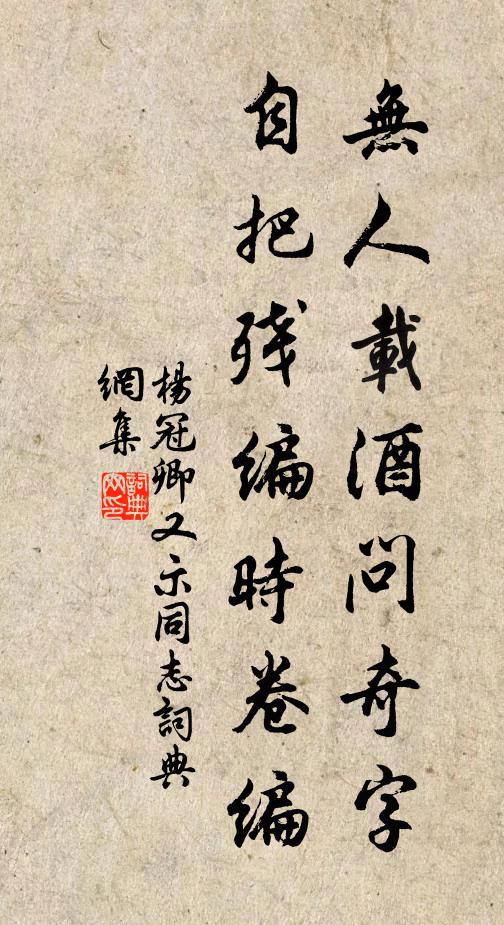 無人載酒問奇字
自把残編時卷編
楊冠卿又示同志詞典
網集
詞典
网印